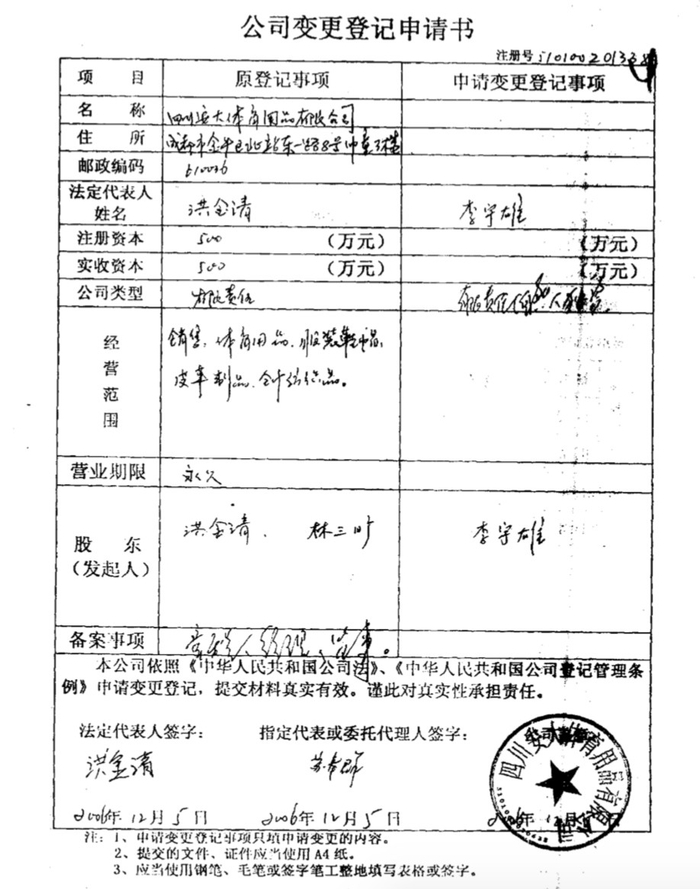 公司变更登记申请书
注册号
项 目 原登记事项 申请变更登记事项
名 称 四川安大体育用品有限公司
住 所 成都市金牛区
邮政编码 610036
法定代表人 姓名 洪金清 李宇雄
注册资本 500 (万元) (万元)
实收资本 500 (万元) (万元)
公司类型 有限责任
经营范围 销售:体育用品、服装鞋帽、
皮革制品、针纺织品。
营业期限 永久
股 东 (发起人) 洪金清、林三 李宇雄
备案事项
本公司依照《中华人民共和国公司法》、《中华人民共和国公司登记管理条
例》申请变更登记,提交材料真实有效。谨此对真实性承担责任。
法定代表人签字: 指定代表或委托代理人签字: 公司盖章
洪金清
2006年12月5日 2006年12月5日 2006年12月5日
四川安大体育用品有限公司
注:1、申请变更登记事项只填申请变更的内容。
2、提交的文件、证件应当使用A4纸。
3、应当使用钢笔、毛笔或签字笔工整地填写表格或签字。